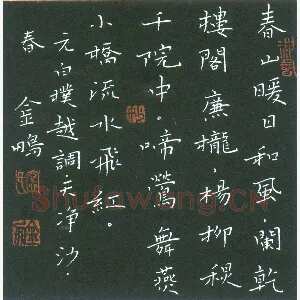 春山暖日和風，闌乾
樓閣廉櫳，楊柳
千院中。啼鶯舞燕
小橋流水飛紅。
元白樸越調天淨沙·
春 金鵬
Shufawang.cn